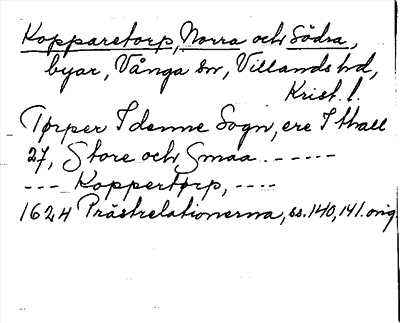 Kopparetorp, Norra och Södra,
byar, Vånga sn, Villands hd,
Krist. l.
Tørper I denne Sogn, ere I thall
27, Store och Smaa ------
--- Koppertørp, ----
1624 Prästrelationerna, ss. 140, 141. orig.